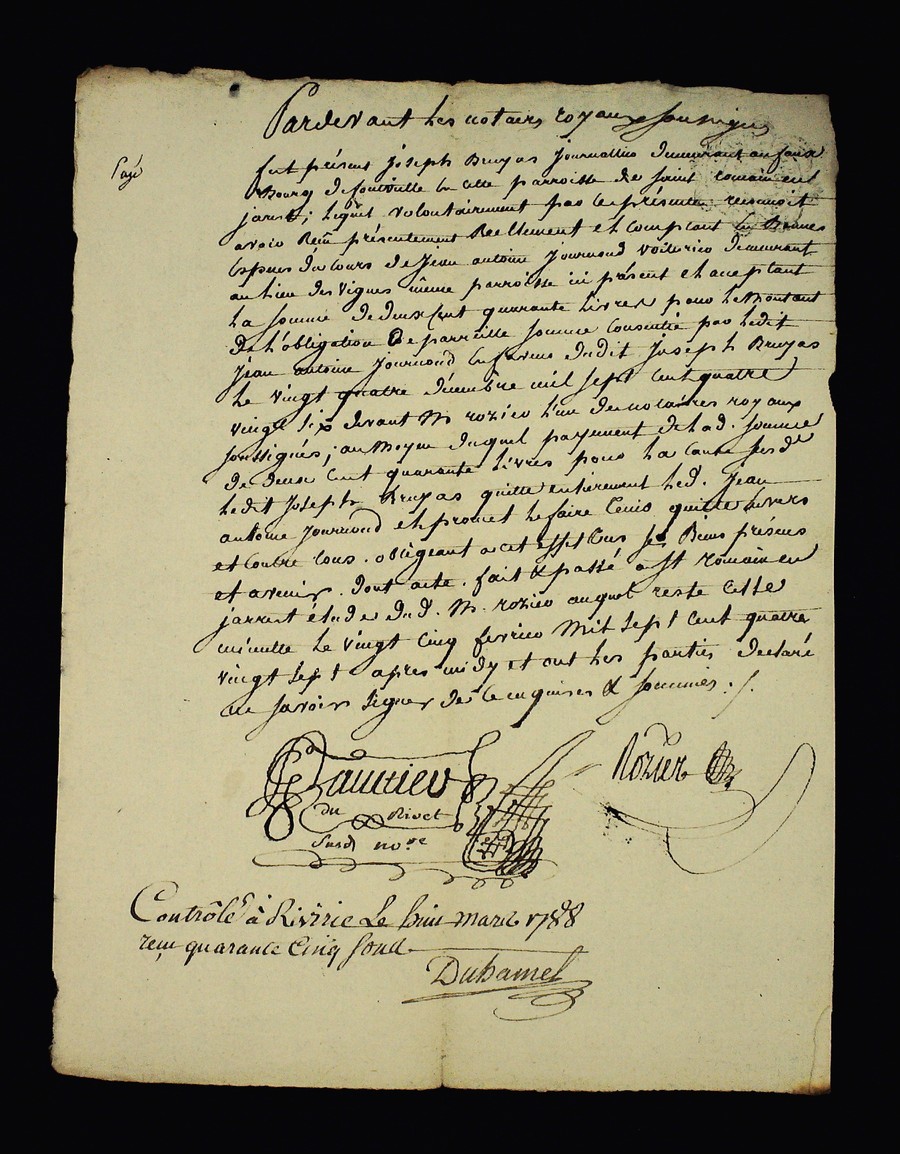 Pardevant Les notaires royaux soussignés
payé
fut présent joseph Bruyas journallier demeurant au faux
Bourg de en cette parroisse de saint romain en
jarest; lequel volontairement par les présentes reconnoit
avoir Reçu présentement Reellement et comptant en Bonnes
Espèces du cours de Jean antoine journoud voiturier demeurant
au lieu des vignes même parroisse ici présent et acceptant
La somme de deux cent quarante livres pour le Montant
De L'obligation De parreille somme consentie par ledit
Jean antoine journoud en faveur dudit joseph Bruyas
Le vingt quatre décembre mil sept cent quatre
vingt six devant M rozier l'un des notaires royaux
soussignés; au Moyen duquel payement de lad. somme
de deux cent quarante livres pour la cause susd.
ledit joseph Bruyas quitte entierement led. jean
antoine journoud et promet le faire tenir quitte envers
et contre tous. obligeant a cet effet tous ses Biens présens
et avenir. dont acte. fait & passé a St romain en
jarrest étude dud. M. rozier auquel reste cette
minutte le vingt cinq fevrier Mil sept cent quatre
vingt sept apres midy et ont les parties declaré
ne savoir signer de ce enquises & sommées ./.
Gauttier Rozier
du Rivet
susd. nore
Contrôlé à Riverie Le huit mars 1788
reçu quarante Cinq sous
Duhamel